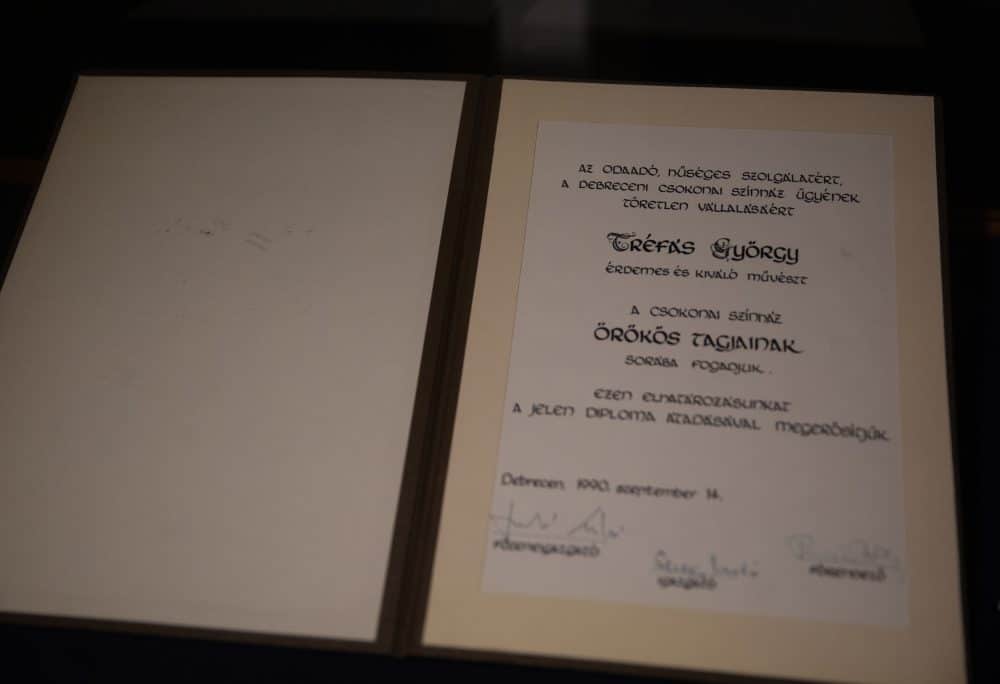 AZ ODAADÓ, HŰSÉGES SZOLGÁLATÉRT,
A DEBRECENI CSOKONAI SZÍNHÁZ ÜGYÉNEK
TÖRETLEN VÁLLALÁSÁÉRT
TRÉFÁS GYÖRGY
ÉRDEMES ÉS KIVÁLÓ MŰVÉSZT
A CSOKONAI SZÍNHÁZ
ÖRÖKÖS TAGJAINAK
SORÁBA FOGADJUK.
EZEN ELHATÁROZÁSUNKAT
A JELEN DIPLOMA ÁTADÁSÁVAL MEGERŐSÍTJÜK.
Debrecen, 1990. szeptember 14.
IGAZGATÓ
FŐRENDEZŐ